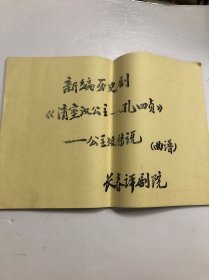 新编历史剧
《清室汉公主—孔四贞》
——公主坟传说
(曲谱)
长春评剧院